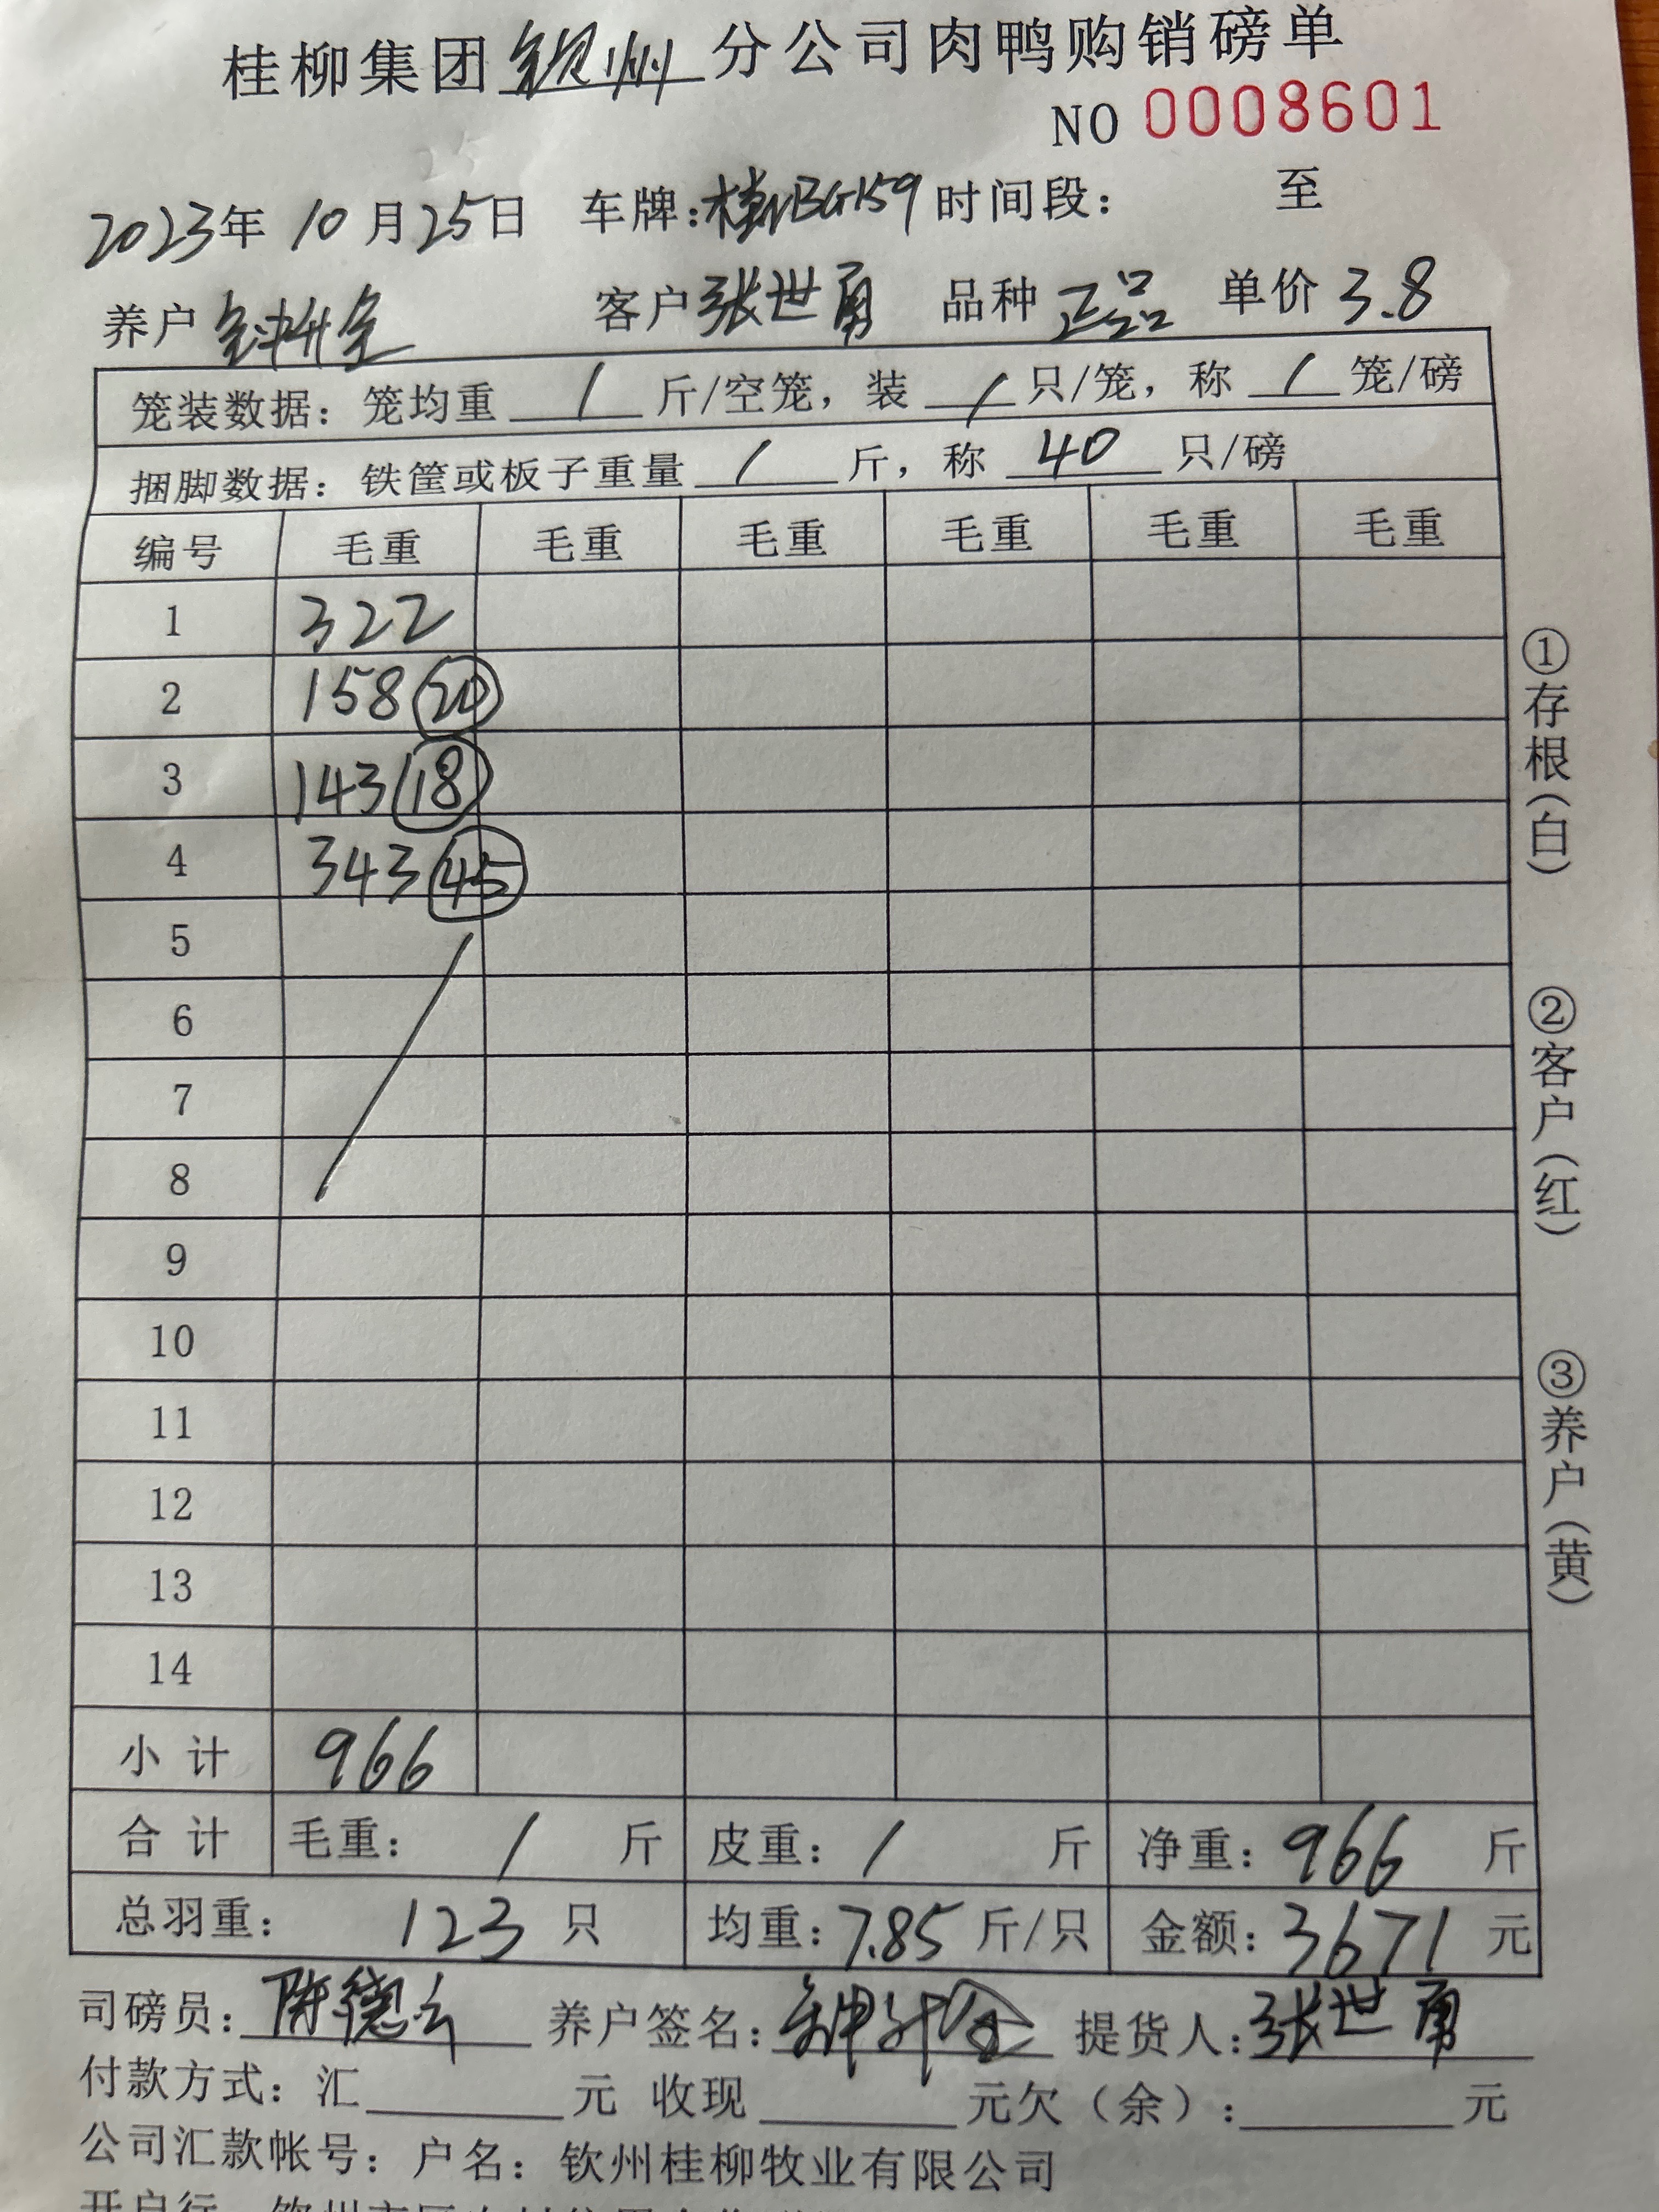 桂柳集团钦州分公司肉鸭购销磅单
NO 0008601
2023年10月25日 车牌:桂NBG159 时间段: 至
养户 钟升全 客户 张世勇 品种 正品 单价 3.8
笼装数据: 笼均重 / 斤/空笼, 装 / 只/笼, 称 / 笼/磅
捆脚数据: 铁筐或板子重量 / 斤, 称 40 只/磅
编号 毛重 毛重 毛重 毛重 毛重 毛重
1 322
2 158 20
3 143 18
4 343 45
5
6
7
8
9
10
11
12
13
14
小计 966
合计 毛重: / 斤 皮重: / 斤 净重: 966 斤
总羽重: 123 只 均重: 7.85 斤/只 金额: 3671 元
司磅员: 陈德云 养户签名: 钟升全 提货人: 张世勇
付款方式: 汇 元 收现 元欠(余): 元
公司汇款帐号: 户名: 钦州桂柳牧业有限公司
①存根(白)
②客户(红)
③养户(黄)